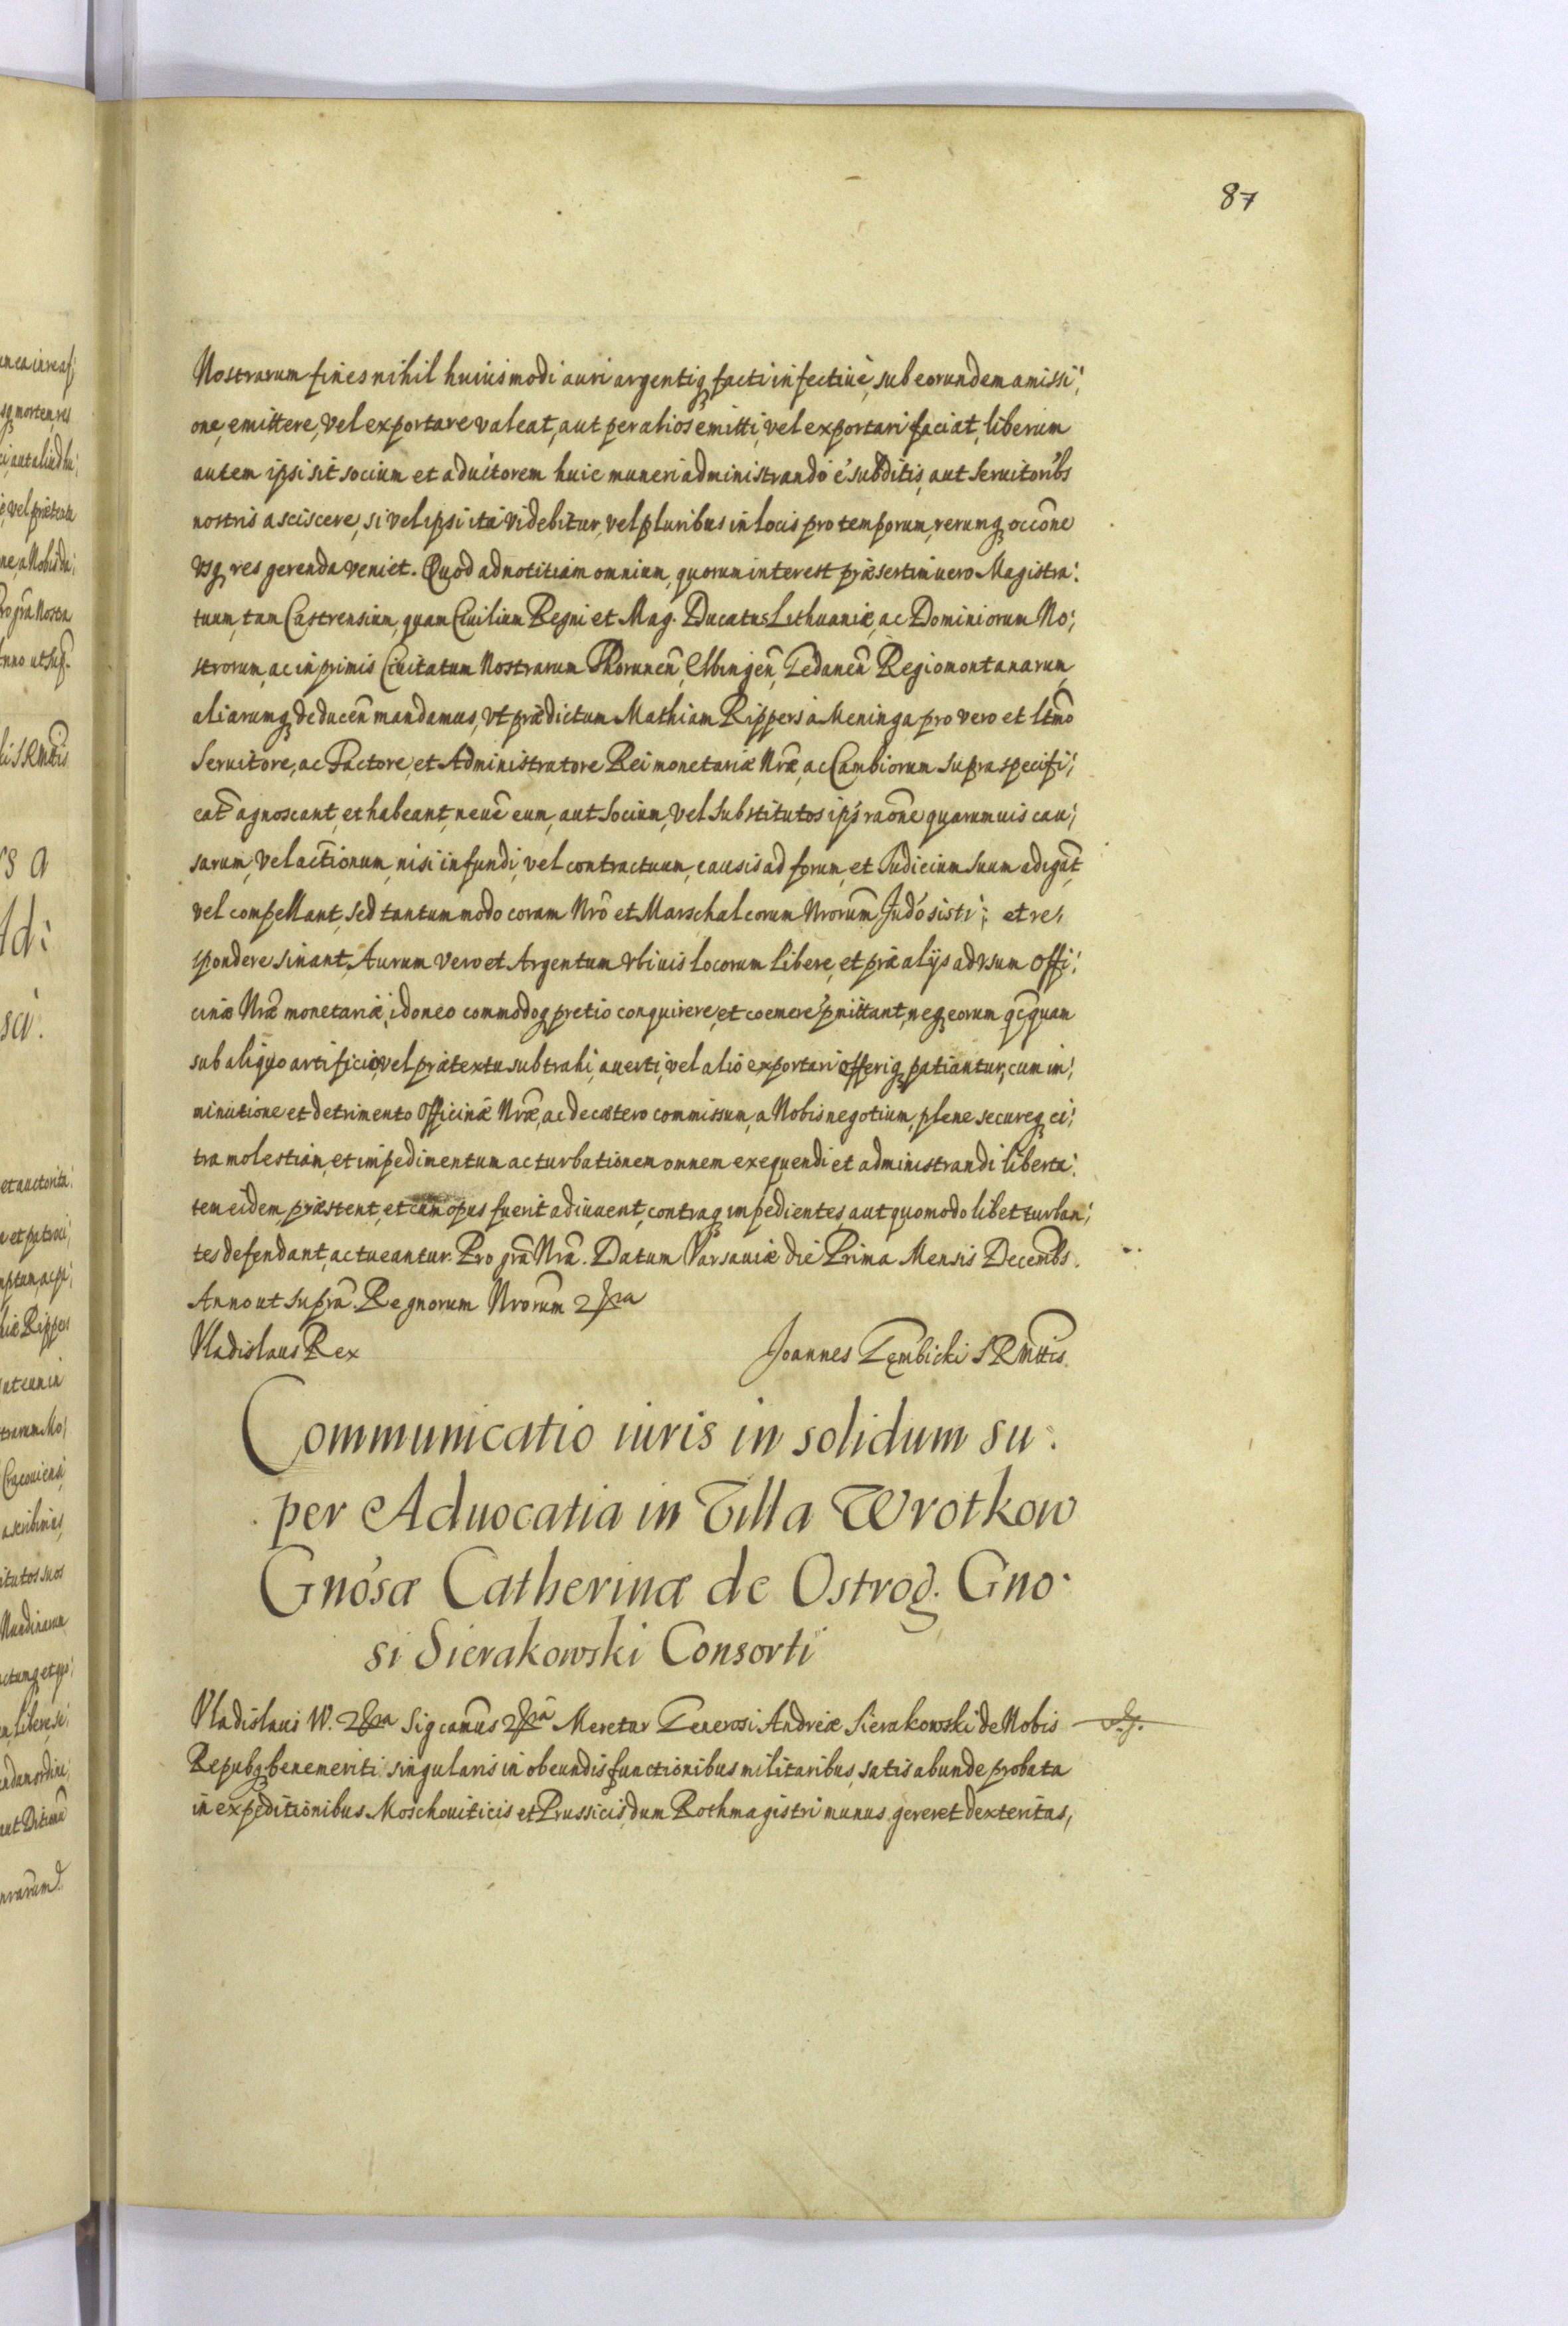 87
Nostrarum fines nihil huiusmodi auri argentiq facti infectiue, sub eorundem amissi:
one, emittere, vel exportare valeat, aut per alios emitti, vel exportari faciat, liberum
autem ipsi sit socium et aduitorem huic muneri administrando é subditis, aut seruitoribs
nostris asciscere, si vel ipsi ita videbitur, vel pluribus in locis pro temporum, rerumq occõne
vsq res gerenda veniet. Quod ad notitiam omnium, quorum interest præsertim vero Magistra:
tuum, tam Castrensium, quam Ciuilium Regni et Mag. Ducatus Lithuaniæ, ac Dominiorum No:
strorum, ac inprimis Ciuitatum Nostrarum Thorunen̄, Elbingen̄, Gedanen̄ Regiomontanarum,
aliarumq deducen̄ mandamus, vt prædictum Mathiam Rippers a Meninga pro vero et ltmo
Seruitore, ac Factore, et Administratore Rei monetariæ Nræ, ac Cambiorum supra specifi:
cat̄ agnoscant, et habeant, neue eum, aut Socium, vel Substitutos ips raõne quarumuis cau:
sarum, vel actionum, nisi in fundi, vel contractuum, causis ad forum, et Iudicium suum adigãt,
vel compellant, sed tantummodo coram Nrõ et Marschalcorum Nrorum Judo sisti; et re:
spondere sinant, Aurum vero et Argentum vbiuis locorum libere, et præ alijs ad vsum Offi:
cinæ Nræ monetariæ, idoneo commodoq pretio conquirere, et coemere pmittant, neq eorum qcquam
sub aliquo artificio, vel prætextu subtrahi, auerti, vel alio exportari Offeriq patiantur, cum im:
minutione et detrimento Officinæ Nræ, ac de cætero commissum, a Nobis negotium, plene secureq ci:
tra molestiam, et impedimentum ac turbationem omnem exequendi et administrandi liberta:
tem eidem, præstent, et cum opus fuerit adiuuent, contraq impedientes, aut quomodolibet turban:
tes defendant, ac tueantur. Pro grã Nrã. Datum Varsauiæ die Prima Mensis Decembs.
Anno ut supra. Regnorum Nrorum &ra
Vladislaus Rex Joannes Gembicki SRMttis.
Communicatio iuris in solidum su:
per Aduocatia in Villa Wrotkow
Gnósæ Catherinæ de Ostrog. Gno:
si Sierakowski Consorti
Vladislaus IV. &ra Sigcamus &ra Meretur Generosi Andreæ Sierakowski de Nobis
Repubq benemeriti singularis in obeundis functionibus militaribus, satis abunde probata
in expeditionibus Moschouiticis et Prussicis, dum Rothmagistri munus gereret dexteritas,